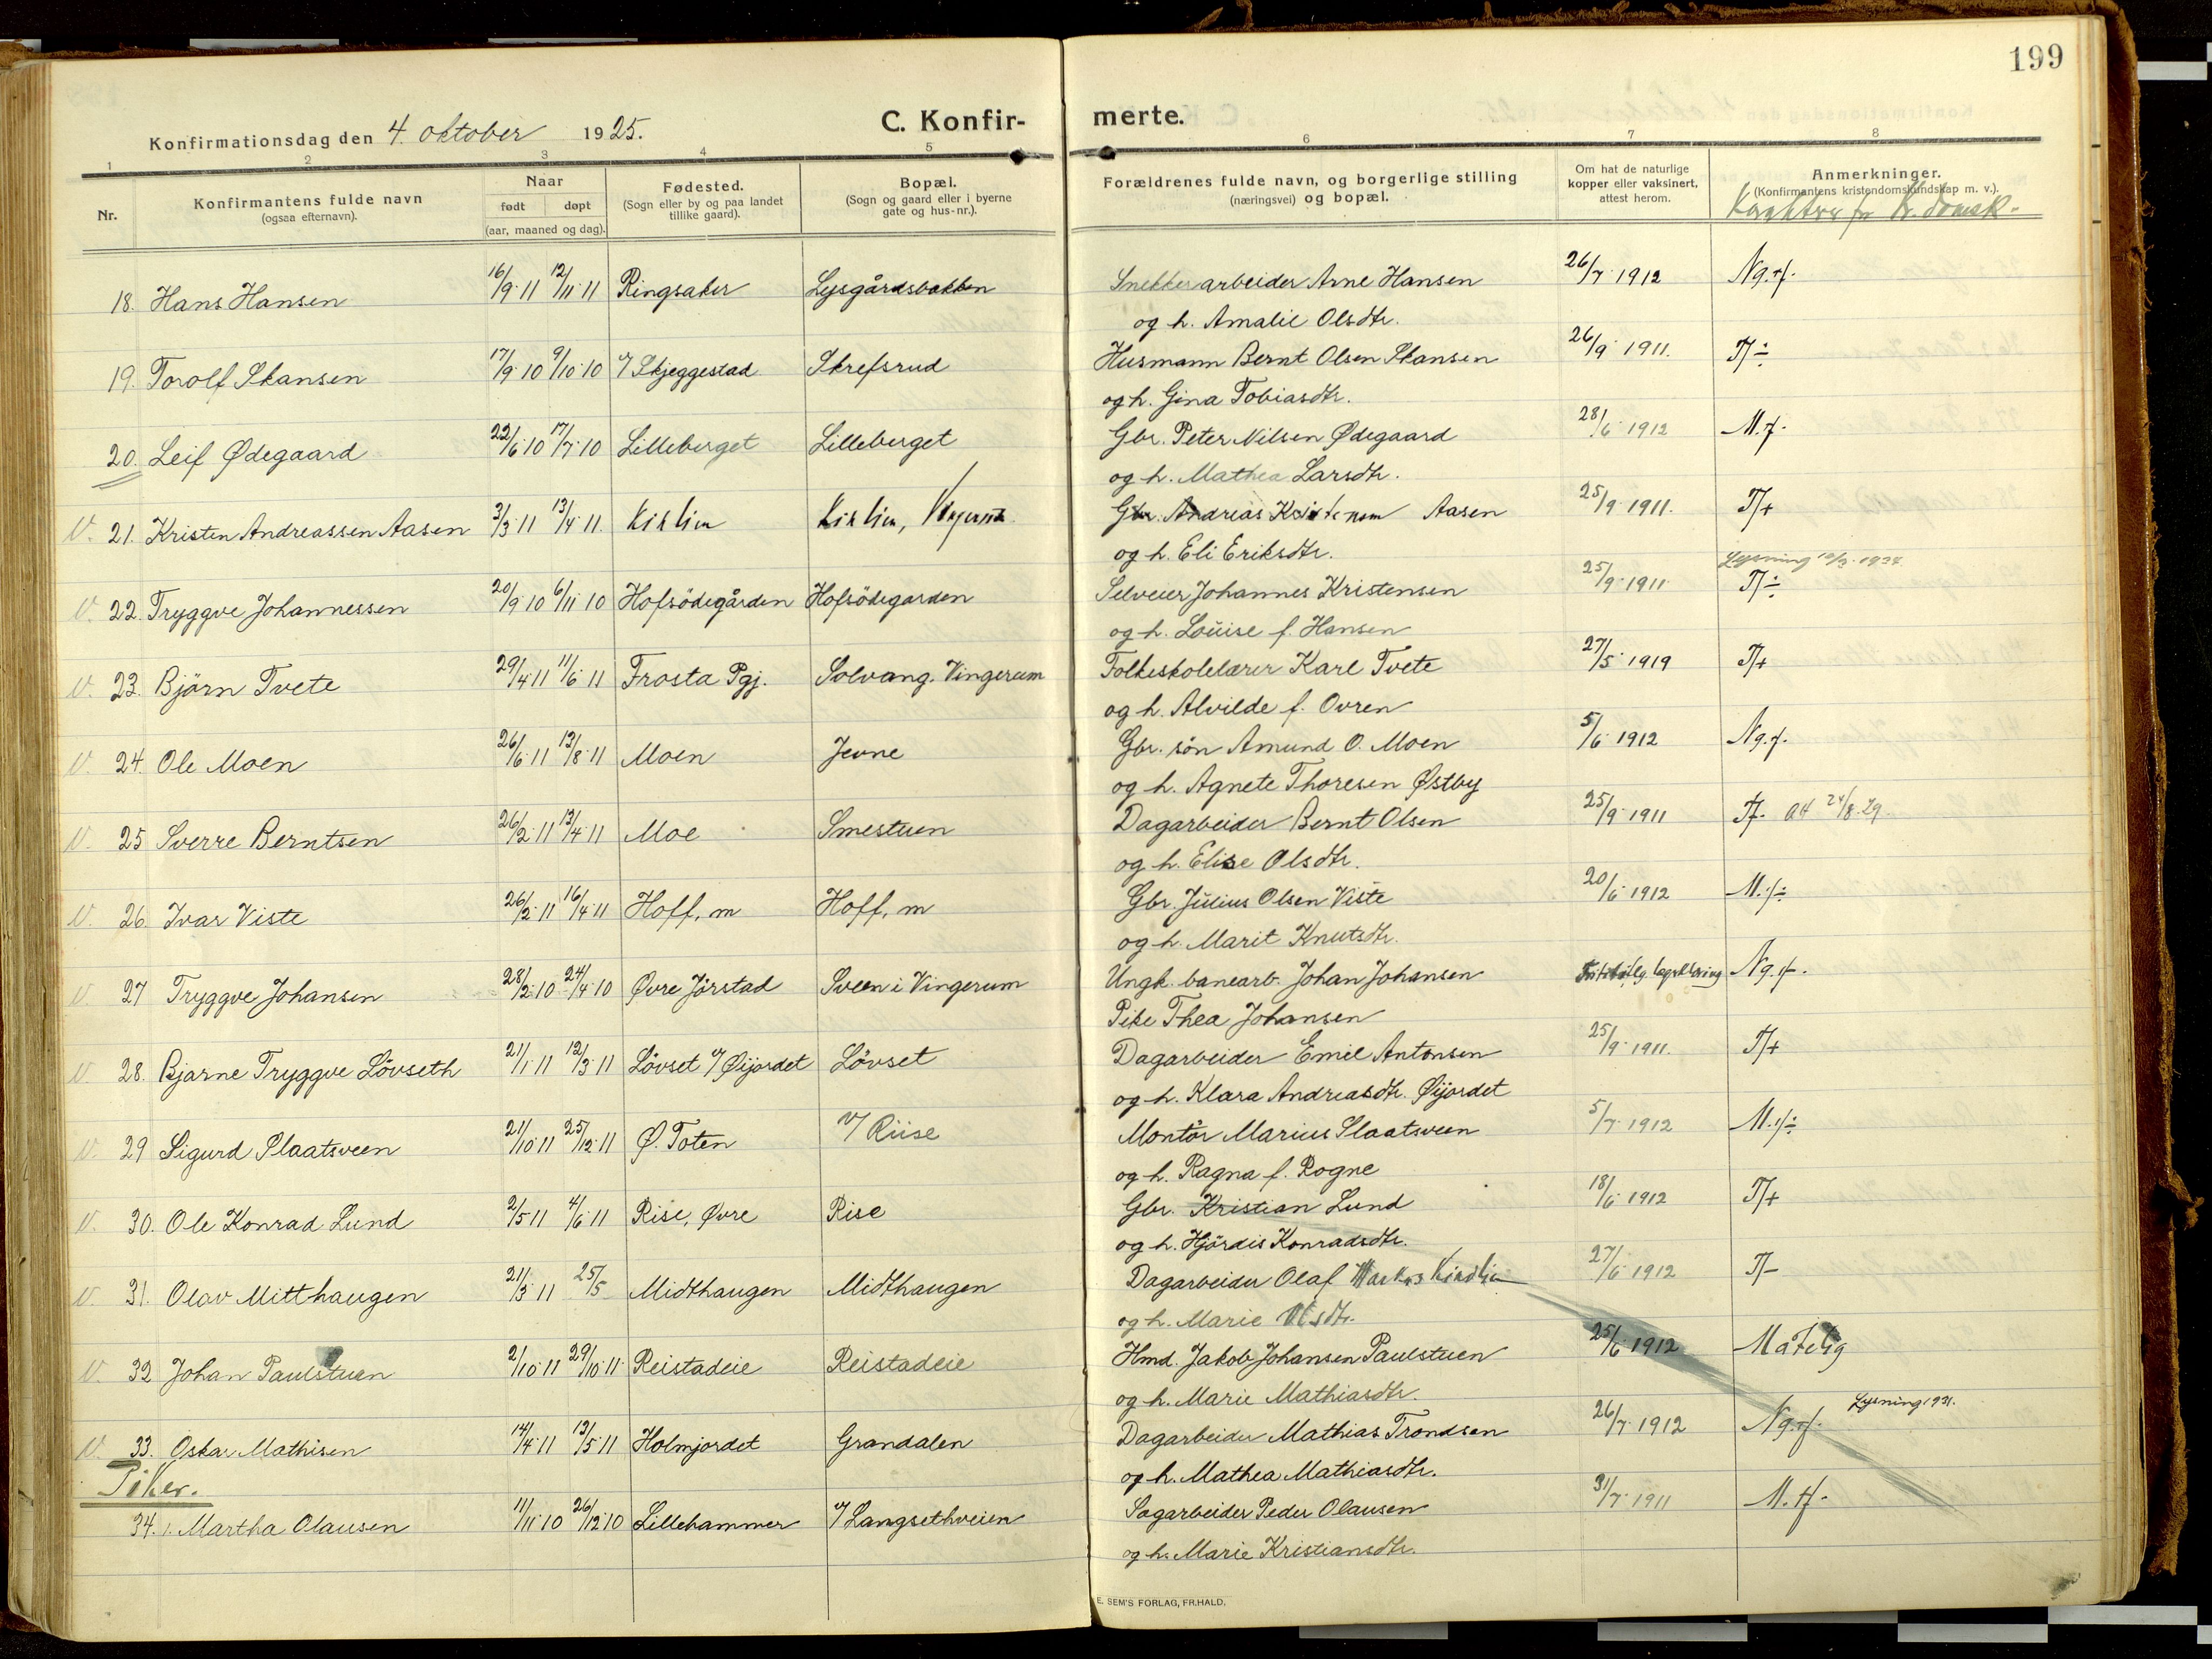 199
Konfirmationsdag den 4. oktober 1925.
C. Konfirmerte.
1 2 3 4 5 6 7 8
Nr.
Konfirmantens fulde navn
(ogsaa efternavn).
Naar
født døpt
(aar, maaned og dag).
Fødested.
(Sogn eller by og paa landet
tillike gaard).
Bopæl.
(Sogn og gaard eller i byerne
gate og hus-nr.).
Forældrenes fulde navn, og borgerlige stilling
(næringsvei) og bopæl.
Om hat de naturlige
kopper eller vaksinert,
attest herom.
Anmerkninger.
(Konfirmantens kristendomskundskap m. v.).
Karakter for kr.domsk.
18. Hans Hansen 16/9 11 12/11 11 Ringsaker Lysgårdsbakken Snekkerarbeider Arne Hansen 26/7 1912 Ng.+.
og h. Amalie Olsdtr.
19. Torolf Skansen 17/9 10 9/10 10 v/ Skjeggestad Skrefsrud Husmann Bernt Olsen Skansen 26/9 1911. T÷
og h. Gina Tobiasdtr.
20. Leif Ødegaard 22/6 10 17/7 10 Lilleberget Lilleberget Gbr. Peter Nilsen Ødegaard 28/6 1912 M.+.
og h. Mathea Larsdtr.
V. 21. Kristen Andreassen Aasen 3/3 11 13/4 11 Kirklien, Gbr. Andreas Aasen 25/9 1911. T+
og h. Eli Eriksdtr.
V. 22. Tryggve Johannessen 20/9 10 6/11 10 Hofsödegården Hofsödegarden Selveier Johannes Kristensen 25/9 1911 T÷ Lysning
og h. Louise f. Hansen
V. 23. Björn Tvete 29/4 11 11/6 11 Frosta Pgj. Solvang. Vingerum Folkeskolelærer Karl Tvete 27/5 1919 T+
og h. Alvilde f. Ovren
V. 24. Ole Moen 26/6 11 13/8 11 Moen Jevne Gbr. søn Amund O. Moen 5/6 1912 Ng.+.
og h. Agnete Thoresen Østby
V. 25 Sverre Berntsen 26/2 11 13/4 11 Moe Smestuen Dagarbeider Bernt Olsen 25/9 1911 T+. att 24/8.29.
og h. Elise Olsdtr.
V. 26. Ivar Viste 26/2 11 16/4 11 Hoff, m Hoff, m Gbr. Julius Olsen Viste 20/6 1912 M.÷
og h. Marit Knutsdtr.
V. 27 Tryggve Johansen 28/2 10 24/4 10 Øvre Jörstad Sveen i Vingerum Ungk. banearb. Johan Johansen Ng.+.
Pike Thea Johansen
V. 28. Bjarne Tryggve Lövseth 21/1 11 12/3 11 Lövset v/ Øijordet Lövset Dagarbeider Emil Antonsen 25/9 1911. T+
og h. Klara Andreasdtr. Øijordet
V. 29 Sigurd Slaatsveen 21/10 11 25/12 11 Ø. Toten v/ Riise Montör Marius Slaatsveen 5/7 1912 M.÷
og h. Ragna f. Rogne
V. 30. Ole Konrad Lund 2/5 11 4/6 11 Rise, Øvre Rise Gbr. Kristian Lund 18/6 1912 T+
og h. Hjördis Konradsdtr.
V. 31. Olav Mitthaugen 21/3 11 25/5 Midthaugen Midthaugen Dagarbeider Olaf Markus Kindlien 27/6 1912 T-
og h. Marie Olsdtr.
V. 32 Johan Paulstuen 2/10 11 29/10 11 Reistadeie Reistadeie Hmd. Jakob Johansen Paulstuen 25/6 1912 Måtelig
og h. Marie Mathiasdtr.
V. 33. Oskar Mathisen 14/4 11 13/5 11 Holmjordet Grandalen Dagarbeider Mathias Trondsen 26/7 1912 Ng.+. Lysning 1931.
og h. Mathea Mathiasdtr.
Piker.
34. 1. Martha Olausen 11/11 10 26/12 10 Lillehammer v/ Langsethveien Sagarbeider Peder Olausen 31/7 1911 M.+.
og h. Marie Kristiansdtr.
E. SEM'S FORLAG, FR.HALD.